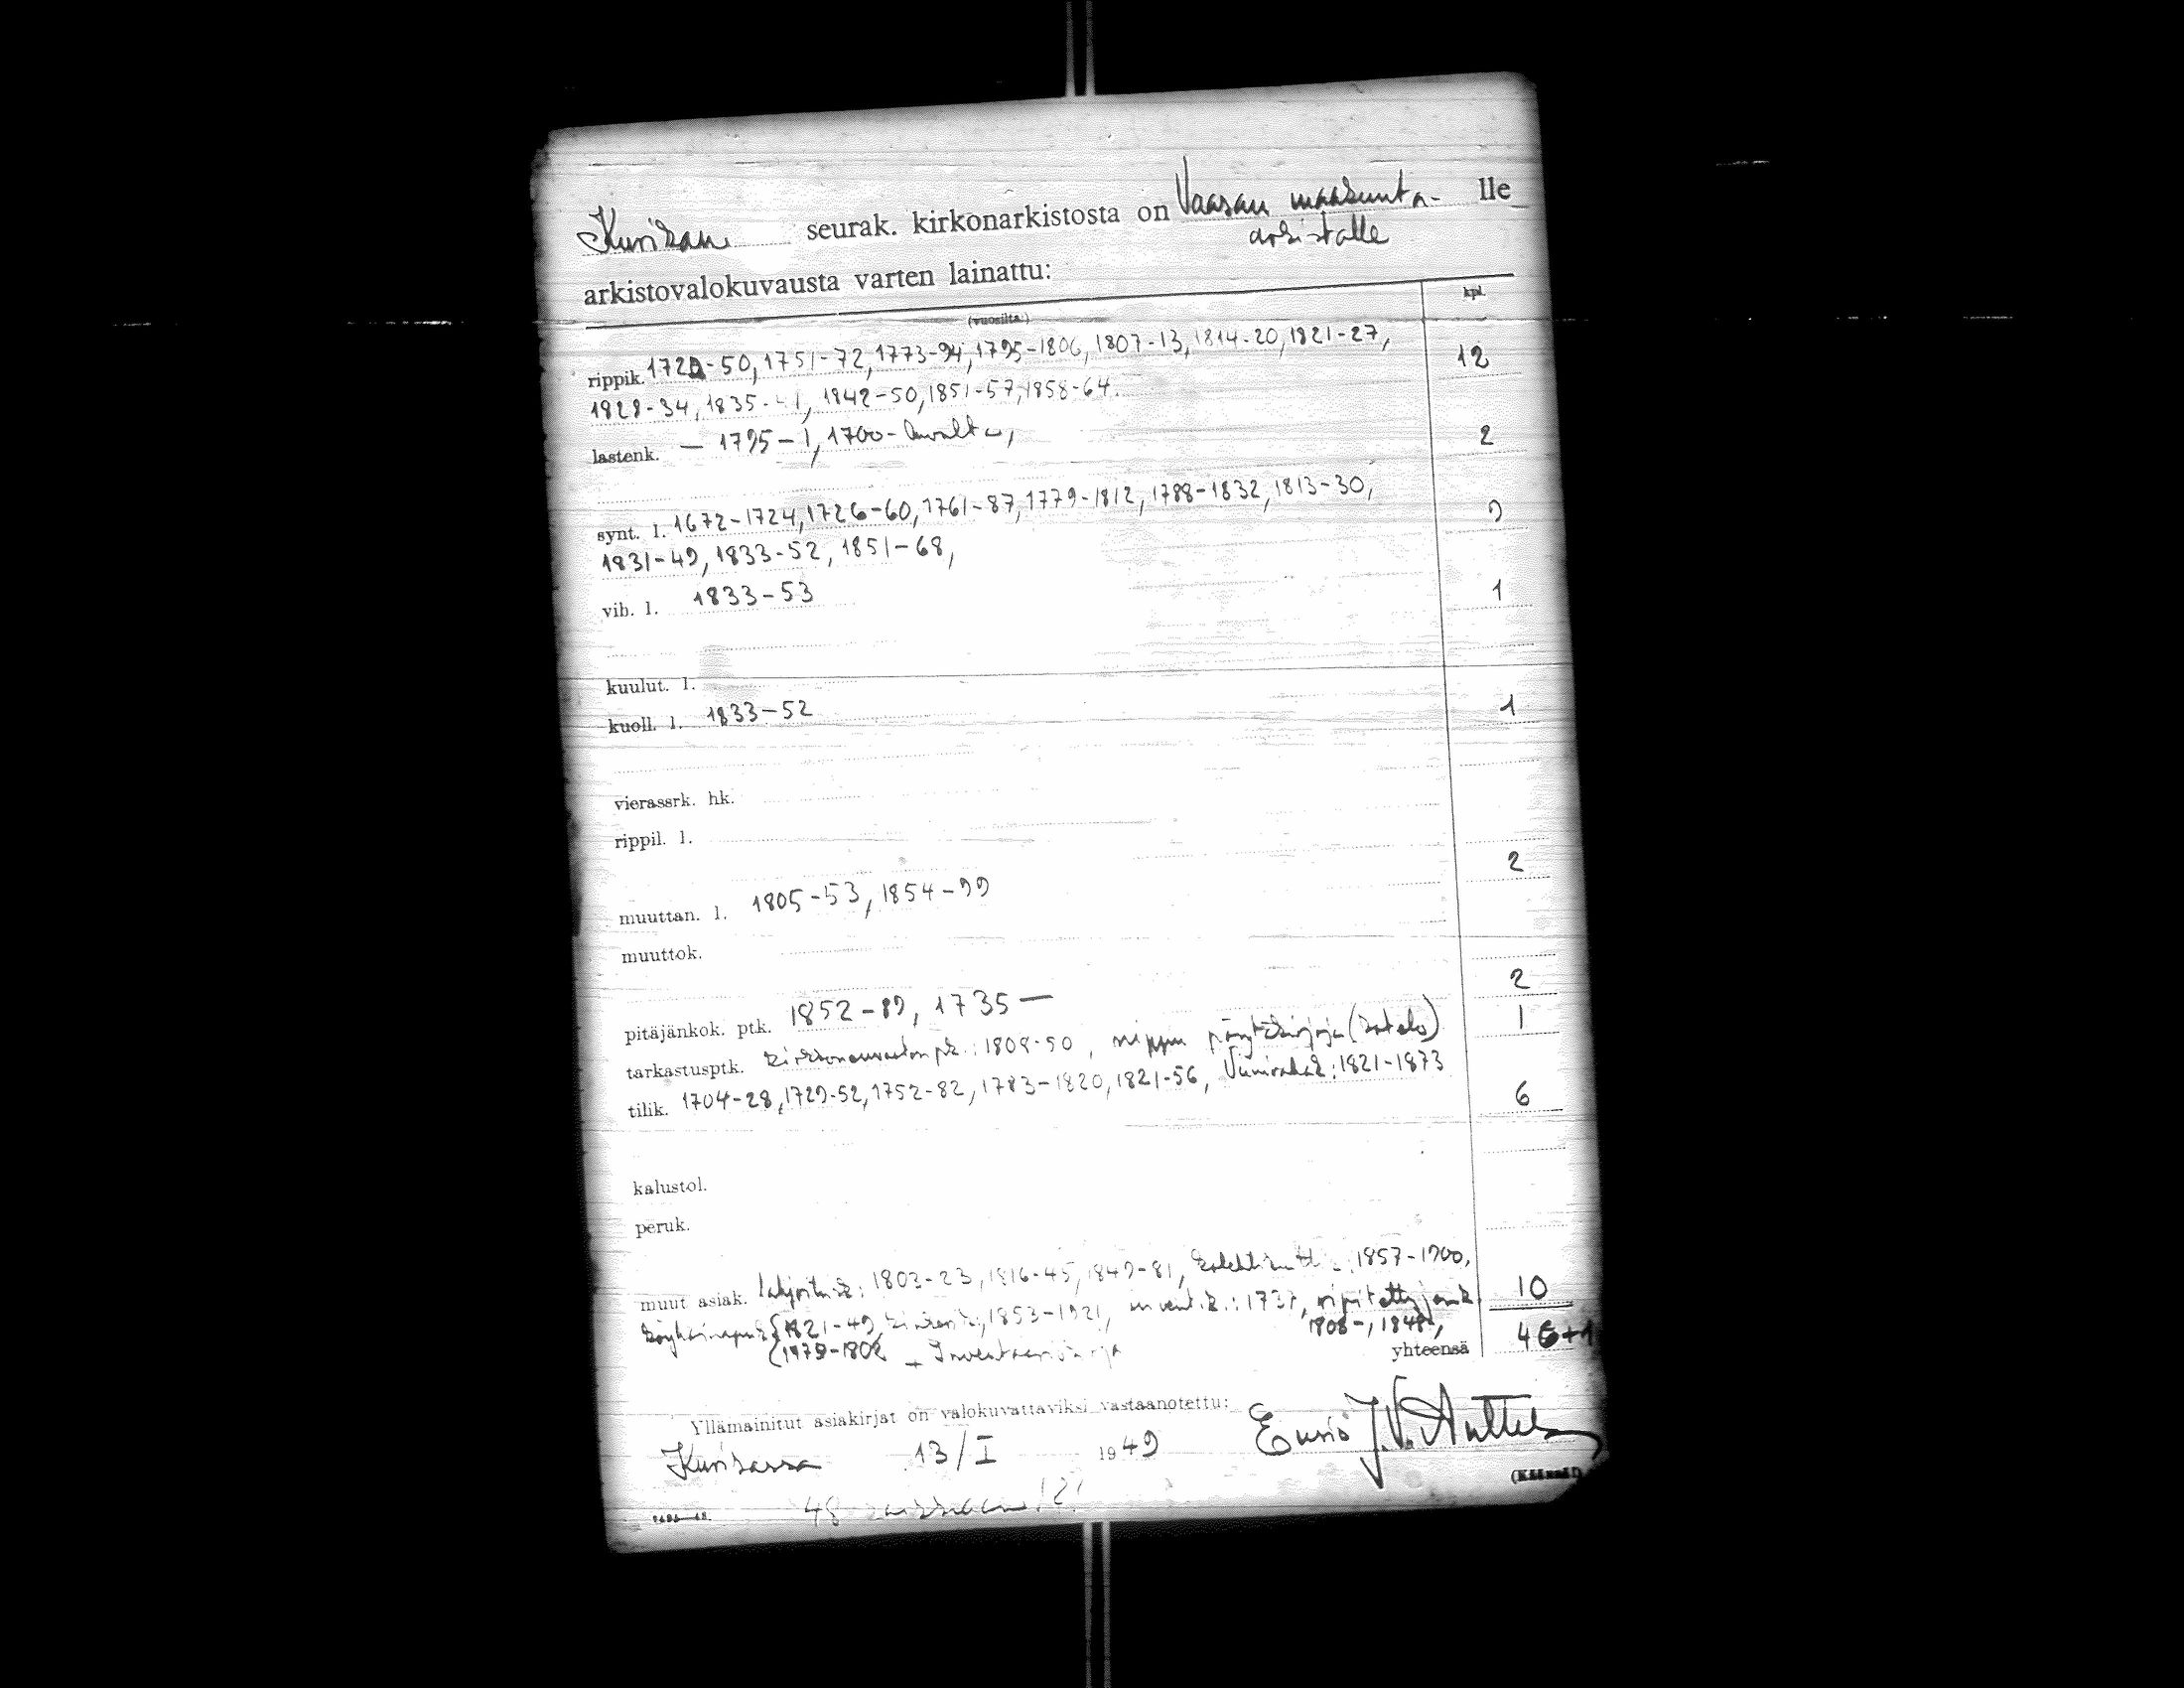 Kurikan seurak. kirkonarkistosta on Vaasan maakunta- lle
arkistolle
arkistovalokuvausta varten lainattu:
(vuosilta:) kpl.
rippik. 1720-50, 1751-72, 1773-94, 1795-1806, 1807-13, 1814-20, 1821-27, 12
1828-34, 1835-41, 1842-50, 1851-57, 1858-64.
lastenk. — 1795-1, 1700-luvulta, 2
synt. l. 1672-1724, 1726-60, 1761-87, 1779-1812, 1788-1832, 1813-30, 9
1831-49, 1833-52, 1851-68,
vih. l. 1833-53 1
kuulut. l.
kuoll. l. 1833-52 1
vierassrk. hk.
rippil. l.
muuttan. l. 1805-53, 1854-99 2
muuttok.
pitäjänkok. ptk. 1852-89, 1735— 2
tarkastusptk. kirkonneuvoston pk.: 1808-50, nippu pöytäkirjoja (kotelo) 1
tilik. 1704-28, 1729-52, 1752-82, 1783-1820, 1821-56, Viinirahak: 1821-1873 6
kalustol.
peruk.
muut asiak. lahjoitusk: 1803-23, 1816-45, 1849-81, 1857-1900, 10
1821-49, 1853-1921, invent.k.: 1737, 1808-, 1848,
- 1802 + Inventaariokirja yhteensä 46+1
Yllämainitut asiakirjat on valokuvattaviksi vastaanotettu:
Kurikassa 13/I 1949 J.V.
(Käännä!)
48